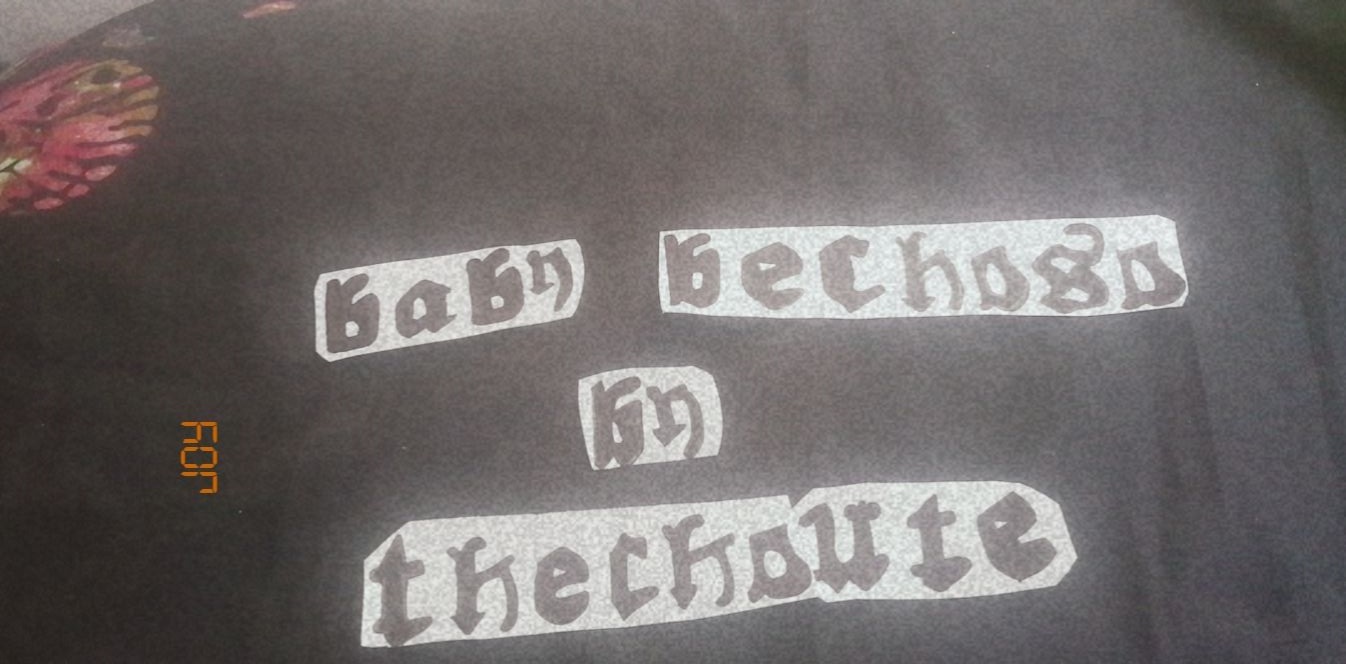 baby beChoso
by
thechoute